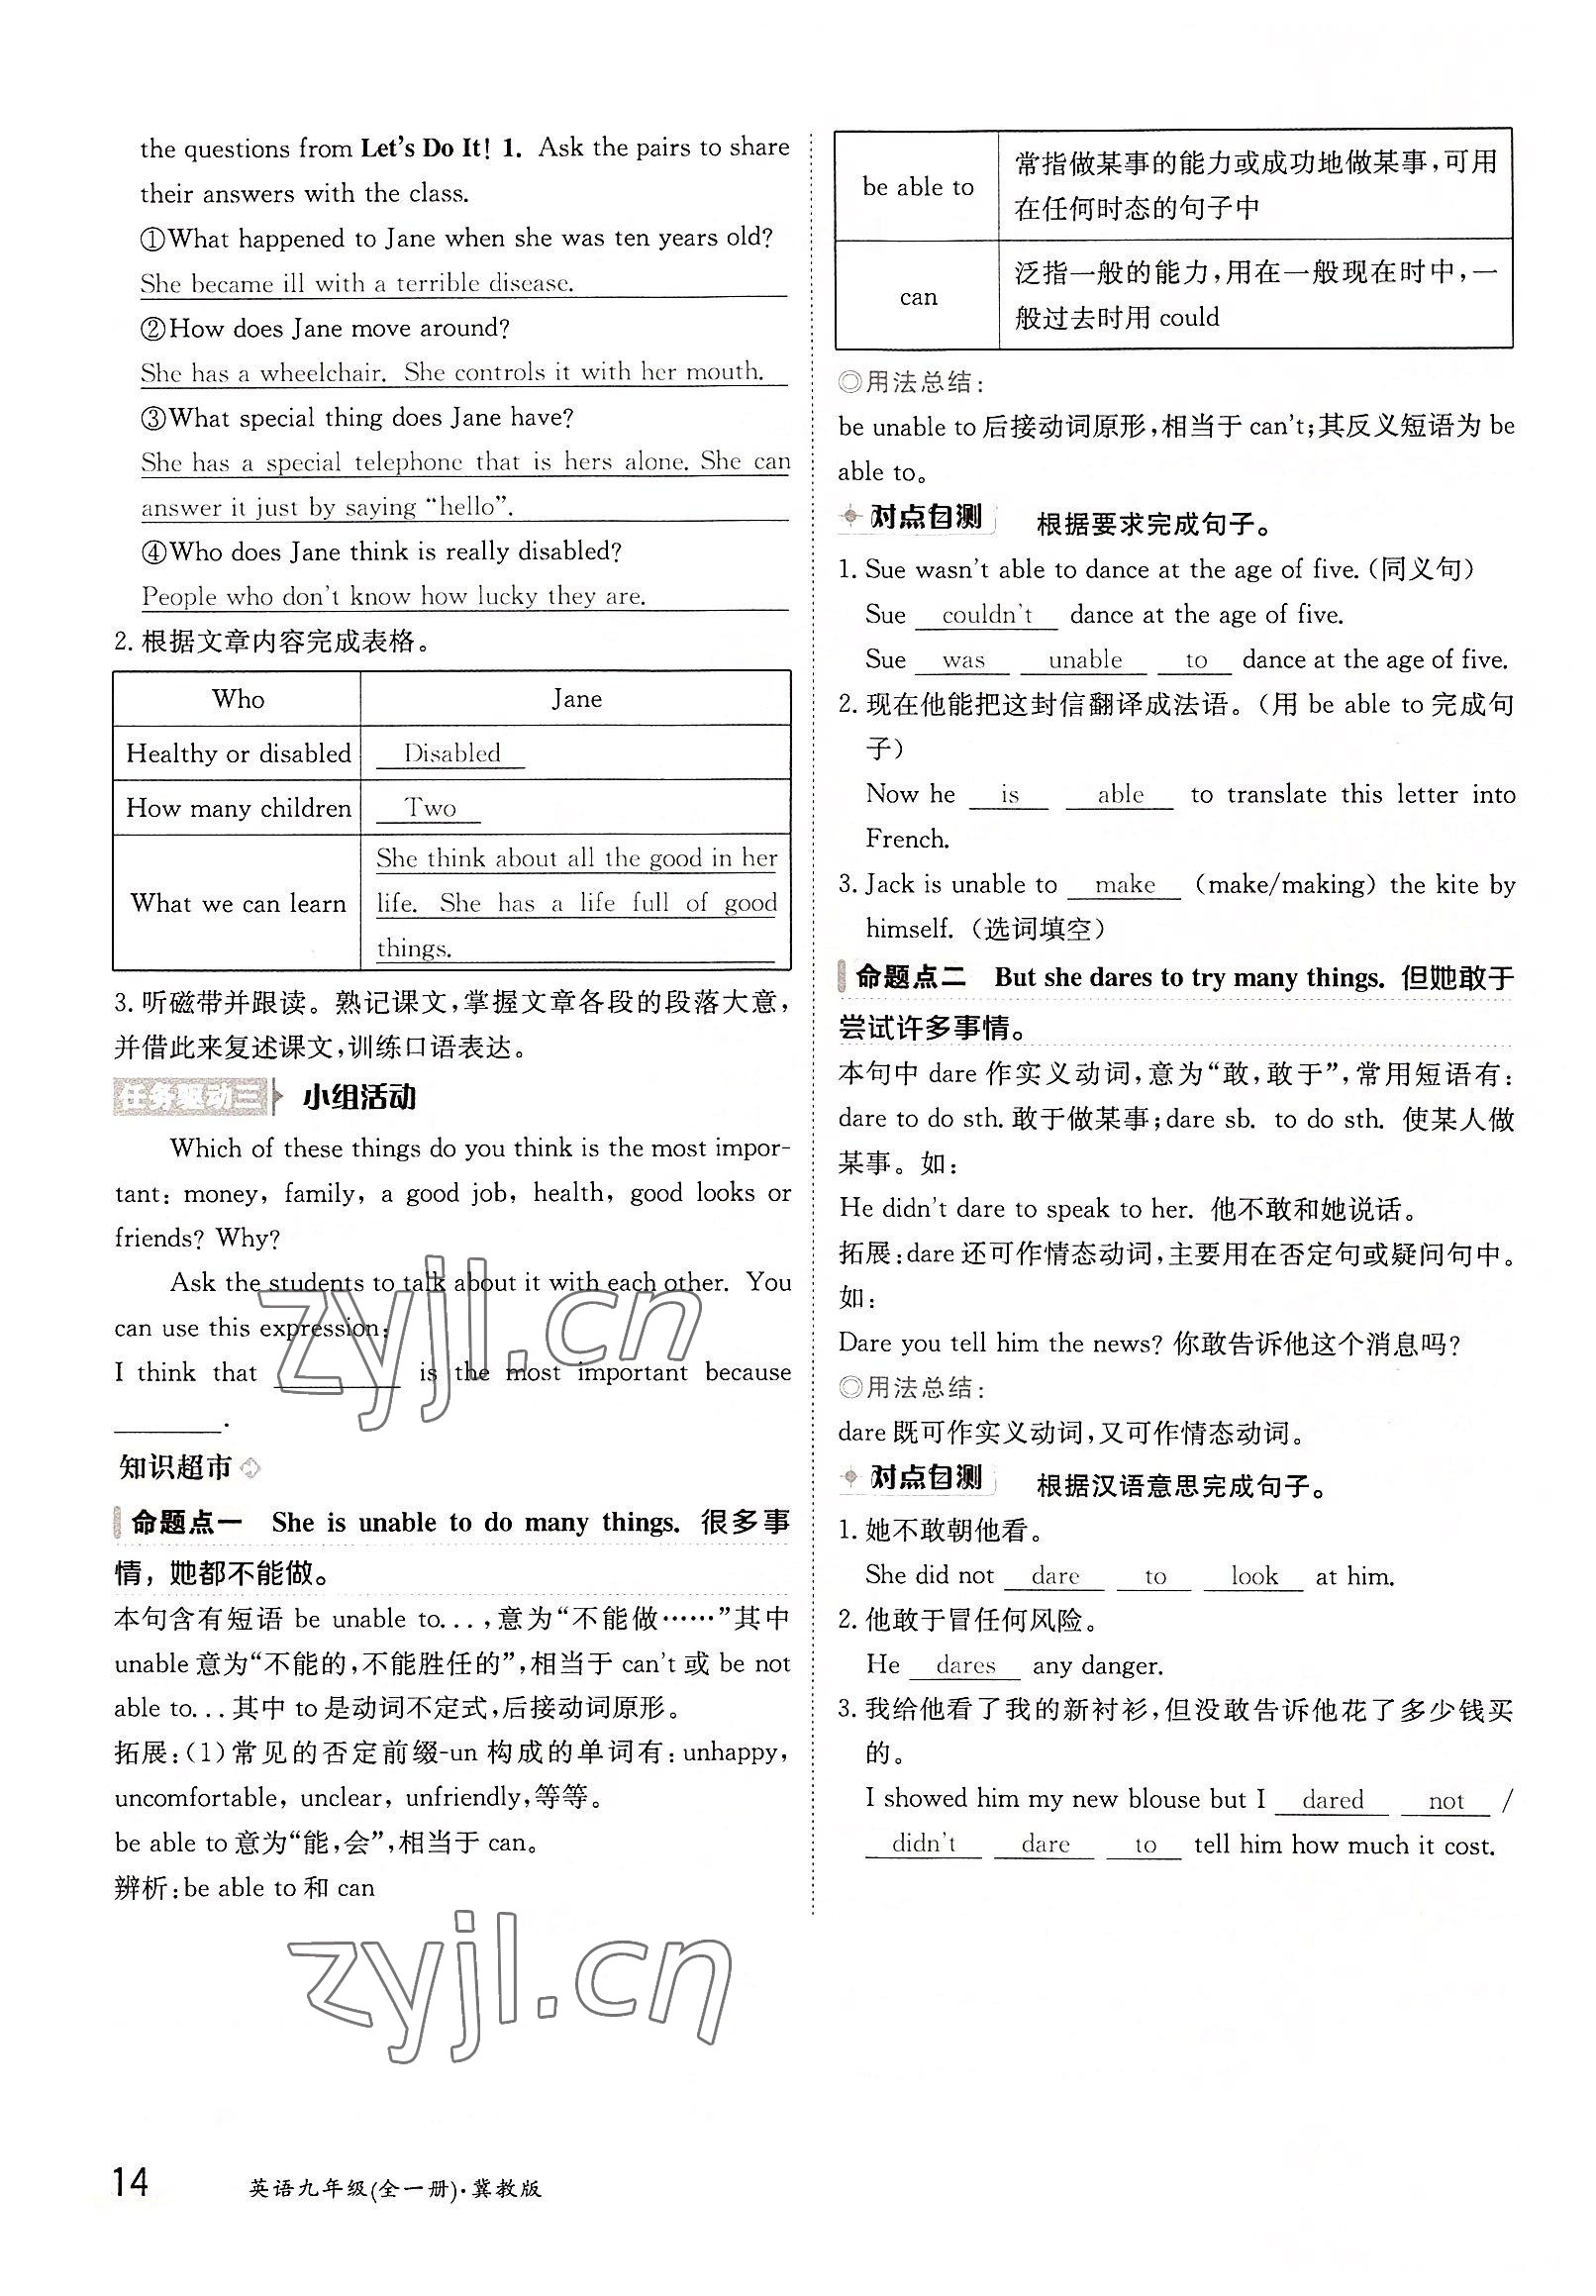 the questions from Let's Do It! 1. Ask the pairs to share
their answers with the class.
①What happened to Jane when she was ten years old?
She became ill with a terrible disease.
②How does Jane move around?
She has a wheelchair. She controls it with her mouth.
③What special thing does Jane have?
She has a special telephone that is hers alone. She can
answer it just by saying “hello”.
④Who does Jane think is really disabled?
People who don't know how lucky they are.
2. 根据文章内容完成表格。
Who Jane
Healthy or disabled Disabled
How many children Two
What we can learn She think about all the good in her
life. She has a life full of good
things.
3. 听磁带并跟读。熟记课文,掌握文章各段的段落大意,
并借此来复述课文,训练口语表达。
任务驱动三 小组活动
Which of these things do you think is the most impor-
tant: money, family, a good job, health, good looks or
friends? Why?
Ask the students to talk about it with each other. You
can use this expression:
I think that ________ is the most important because
________.
知识超市
命题点一 She is unable to do many things. 很多事
情，她都不能做。
本句含有短语 be unable to...,意为“不能做……”其中
unable 意为“不能的,不能胜任的”,相当于 can't 或 be not
able to...其中 to 是动词不定式,后接动词原形。
拓展:(1)常见的否定前缀-un 构成的单词有:unhappy,
uncomfortable, unclear, unfriendly,等等。
be able to 意为“能,会”,相当于 can。
辨析:be able to 和 can
be able to 常指做某事的能力或成功地做某事,可用
在任何时态的句子中
can 泛指一般的能力,用在一般现在时中,一
般过去时用 could
◎用法总结:
be unable to 后接动词原形,相当于 can't;其反义短语为 be
able to。
对点自测 根据要求完成句子。
1. Sue wasn't able to dance at the age of five.(同义句)
Sue couldn't dance at the age of five.
Sue was unable to dance at the age of five.
2. 现在他能把这封信翻译成法语。(用 be able to 完成句
子)
Now he is able to translate this letter into
French.
3. Jack is unable to make (make/making) the kite by
himself. (选词填空)
命题点二 But she dares to try many things. 但她敢于
尝试许多事情。
本句中 dare 作实义动词,意为“敢,敢于”,常用短语有:
dare to do sth. 敢于做某事;dare sb. to do sth. 使某人做
某事。如:
He didn't dare to speak to her. 他不敢和她说话。
拓展:dare 还可作情态动词,主要用在否定句或疑问句中。
如:
Dare you tell him the news? 你敢告诉他这个消息吗?
◎用法总结:
dare 既可作实义动词,又可作情态动词。
对点自测 根据汉语意思完成句子。
1. 她不敢朝他看。
She did not dare to look at him.
2. 他敢于冒任何风险。
He dares any danger.
3. 我给他看了我的新衬衫,但没敢告诉他花了多少钱买
的。
I showed him my new blouse but I dared not /
didn't dare to tell him how much it cost.
zyjl.cn
zyjl.cn
14 英语九年级(全一册)·冀教版